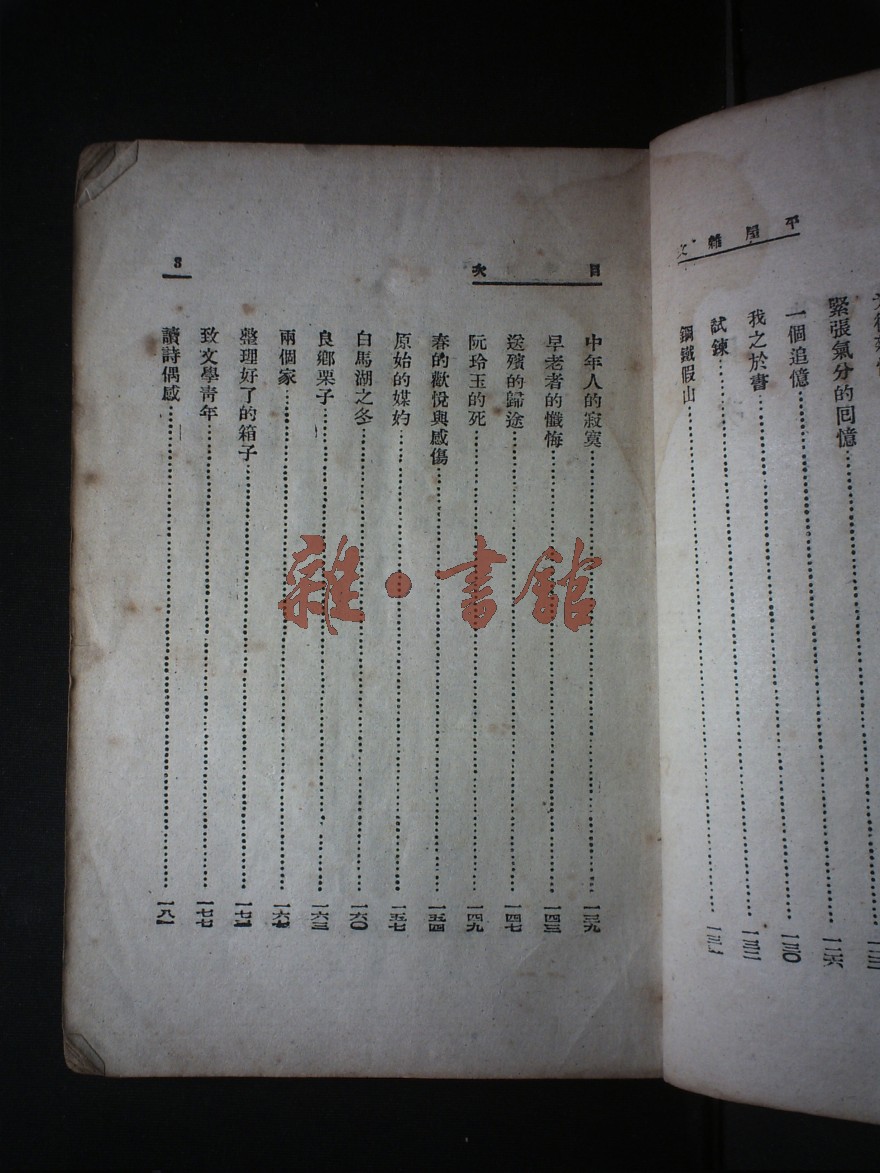 平屋雜文
緊張氣分的回憶……一二六
一個追憶……一三〇
我之於書……一三二
試鍊……
鋼鐵假山
目次
3
中年人的寂寞……一三九
早老者的懺悔……一四三
送殯的歸途……一四七
阮玲玉的死……一四九
春的歡悅與感傷……一五四
原始的媒妁……一五七
白馬湖之冬……一六〇
良鄉栗子……一六三
兩個家……一六七
整理好了的箱子……
致文學青年……一七七
讀詩偶感……一八一
雜·書館